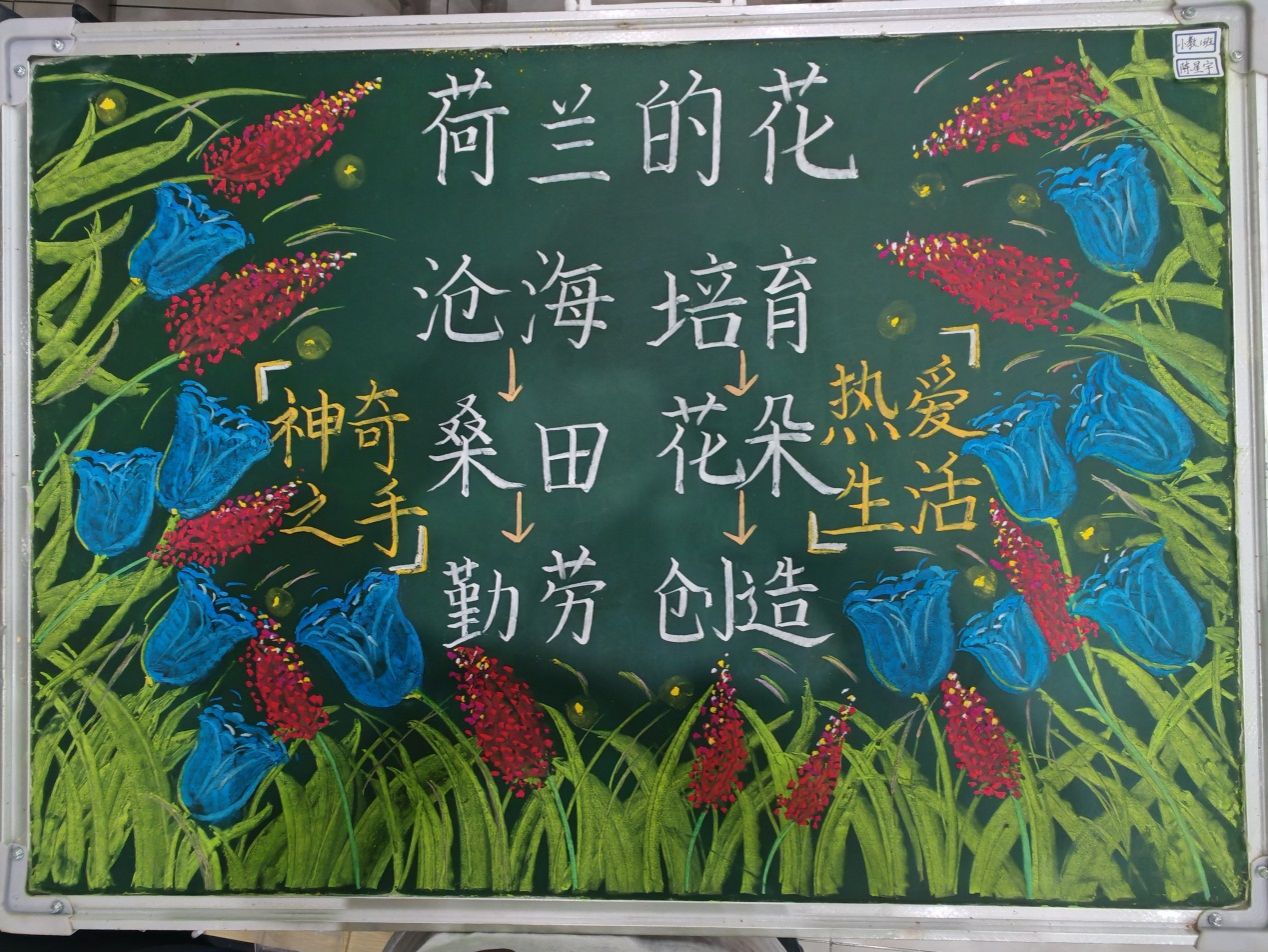 小教1班
陈星宇
荷兰的花
沧海 培育
神奇 桑田 花朵 热爱
之手 生活
勤劳 创造